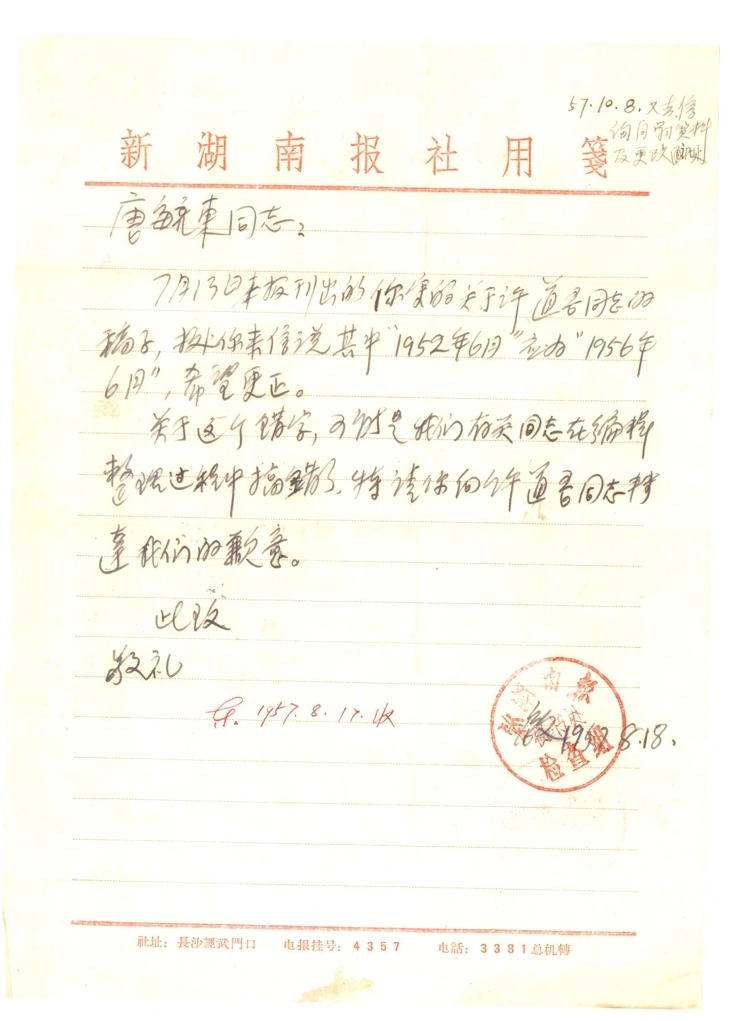 57.10.8.又去信
询问
及更改
新湖南报社用箋
唐毓東同志：
7月13日本报刊出的你写的关于许道吾同志的
稿子，据你来信说其中“1952年6月”应为“1956年
6月”，希望更正。
关于这个错字，可能是我们有关同志在编辑
整理过程中搞错了。特请你向许道吾同志转
達我们的歉意。
此致
敬礼
新湖南报
检查組
8.18.
1957.8.17.收
社址：長沙經武門口 电报挂号：4357 电話：3381总机轉